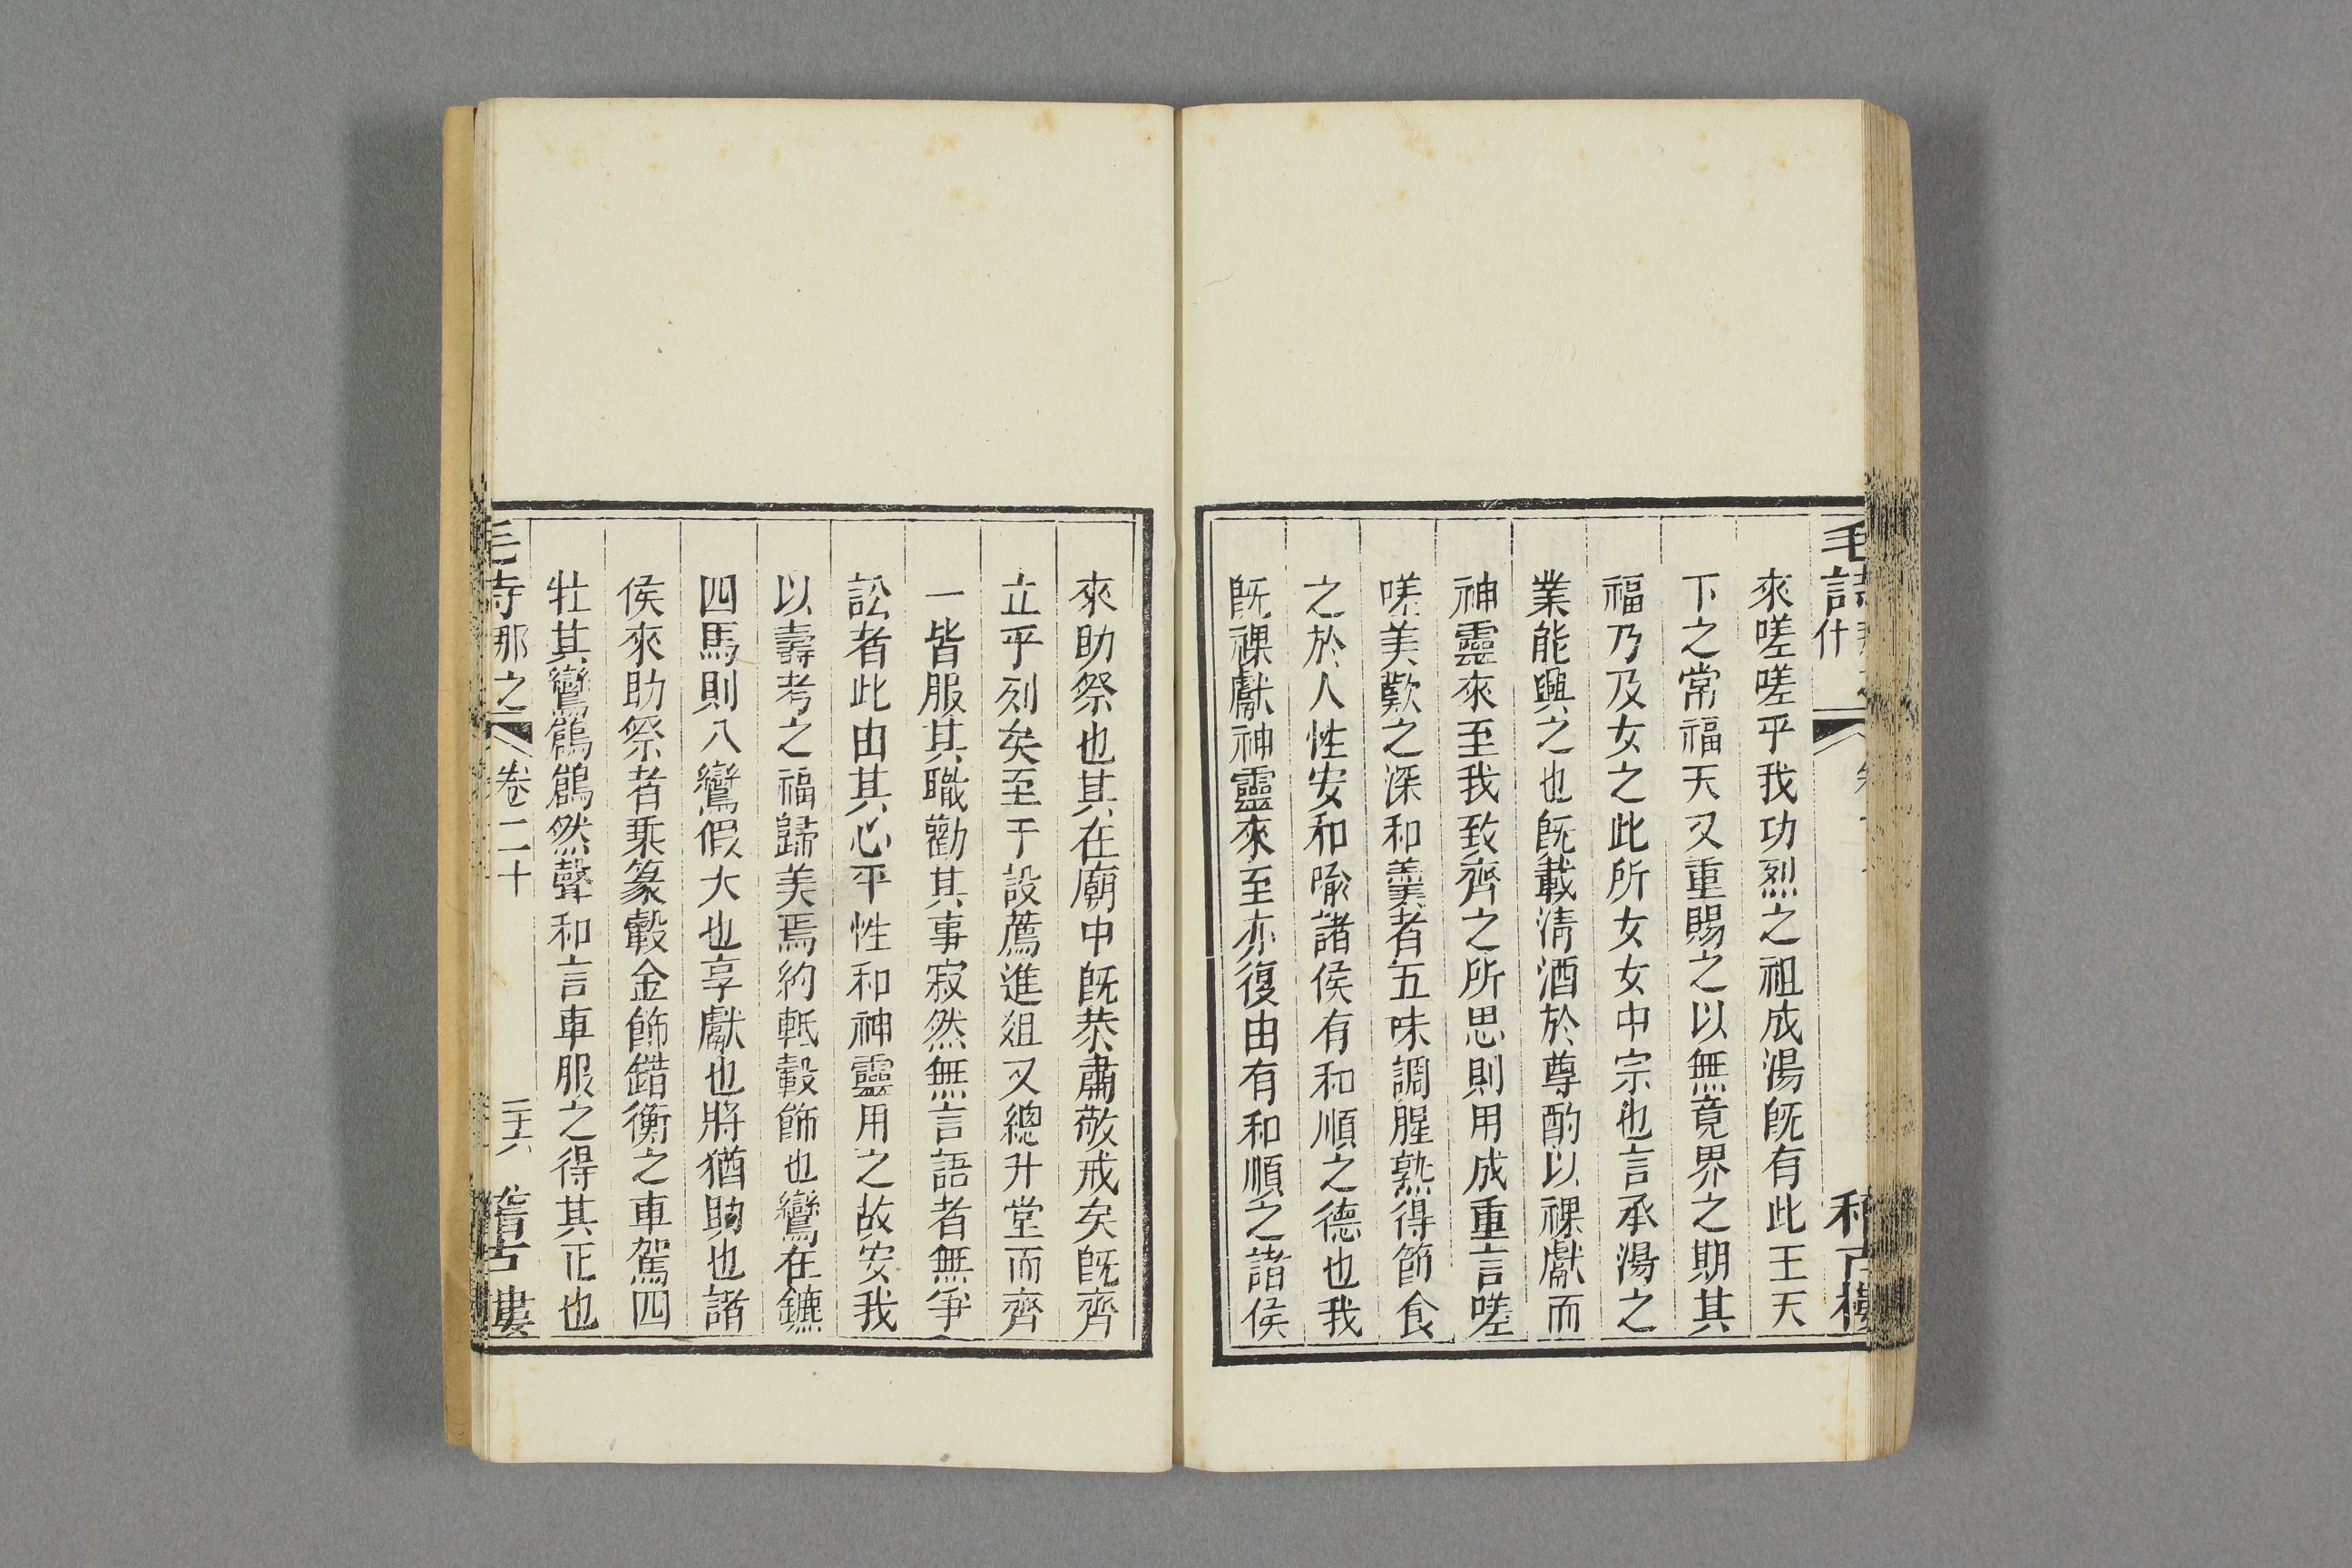 來嗟嗟乎我功烈之祖成湯旣有此王天
下之常福天又重賜之以無竟界之期其
福乃及女之此所女女中宗也言承湯之
業能興之也旣載淸酒於尊酌以祼獻而
神靈來至我致齊之所思則用成重言嗟
嗟美歎之深和羹者五味調腥熟得節食
之於人性安和喩諸侯有和順之德也我
旣祼獻神靈來至亦復由有和順之諸侯
來助祭也其在廟中旣恭肅敬戒矣旣齊
立乎列矣至于設薦進俎又總升堂而齊
一皆服其職勸其事寂然無言語者無爭
訟者此由其心平性和神靈用之故安我
以壽考之福歸美焉約軝轂飾也鸞在鑣
四馬則八鸞假大也享獻也將猶助也諸
侯來助祭者乘篆轂金飾錯衡之車駕四
牡其鸞鶬鶬然聲和言車服之得其正也
那之
卷二十
二十六
古樓